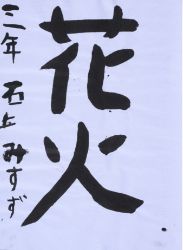 花火
三年 石丘 みすず